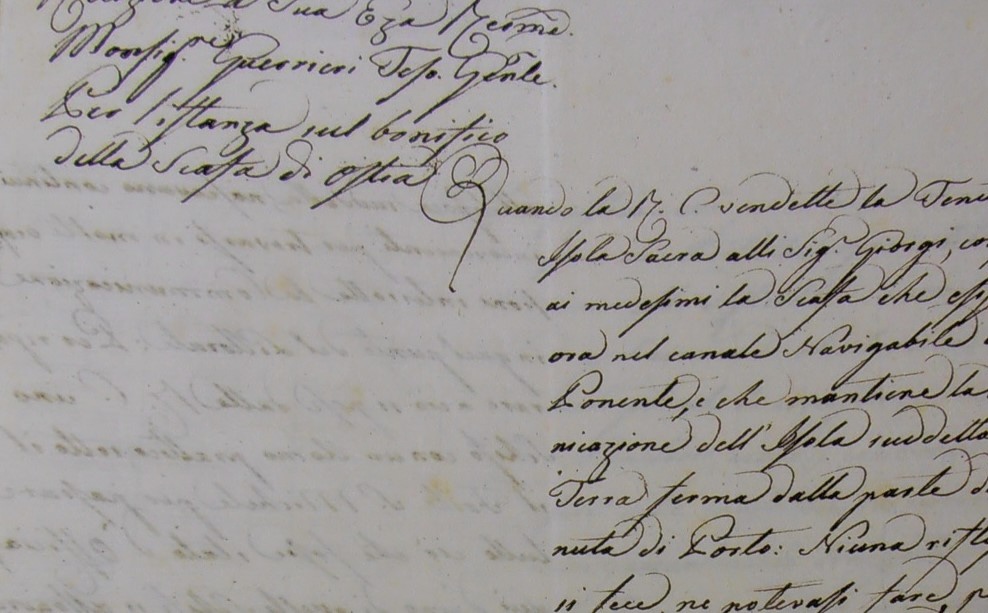 Relazione a Sua Ecza Rema.
Monsigr. Guerrieri Teso. Gñle.
Per l'istanza sul bonifico
della Scafa di Ostia
Quando la R. C. vendette la Tenu
Isola Sacra alli Sigr. Giorgi, co
ai medesimi la Scafa che esi
ora nel canale Navigabile
Ponente, e che mantiene la
nicazione dell'Isola suddetta
Terra ferma dalla parte d
nuta di Porto: Niuna rifle
si fece, ne potevasi fare, p